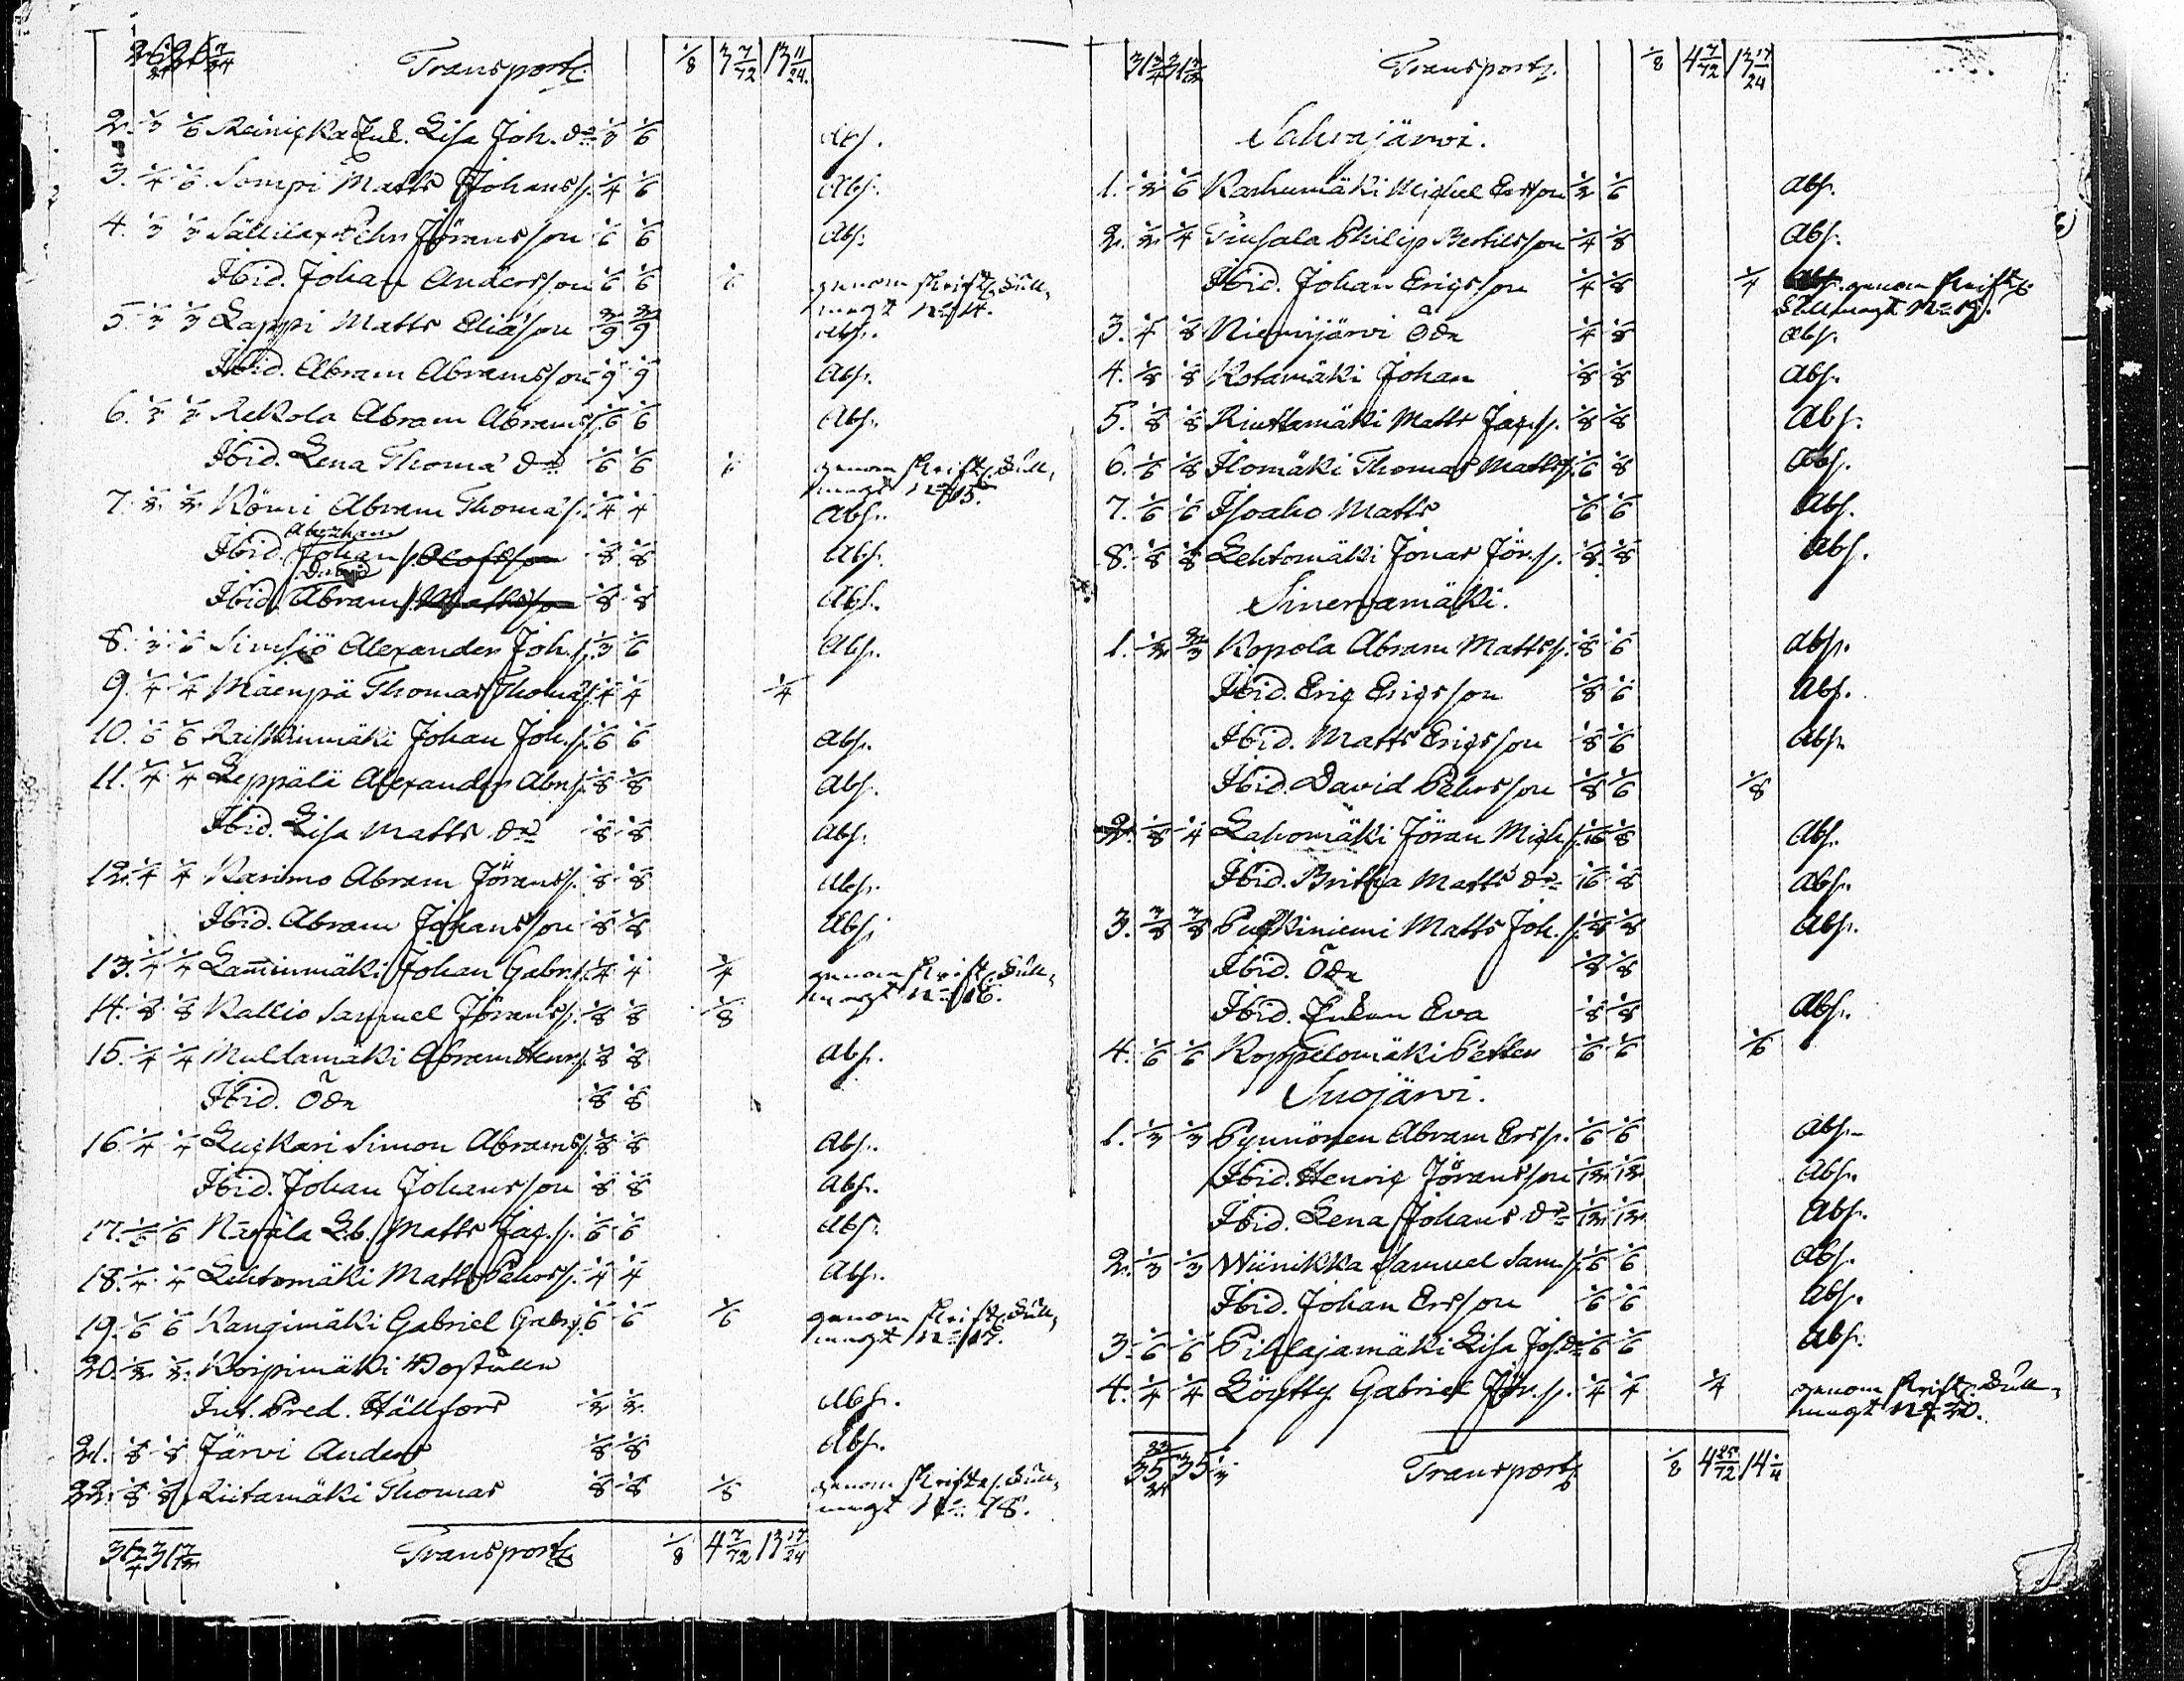 Transport. 1/8 3 7/72 13 11/24
2. 1/3 1/6 Reinikka Enk. Lisa Joh. dr 1/3 1/6 Abs.
3. 1/4 1/6 Sompi Matts Johanss. 1/4 1/6 Abs.
4. 1/3 1/3 Pehr Jöransson 1/6 1/6 Abs.
Ibid. Johan Andersson 1/6 1/6 1/6 genom skriftl. full,
magt No 14.
5. 1/3 1/3 Lappi Matts Eliäson 2/9 2/9 Abs.
Ibid. Abram Abramsson 1/9 1/9 Abs.
6. 1/3 1/3 Rekola Abram Abramss. 1/6 1/6 Abs.
Ibid. Lena Thoma dr 1/6 1/6 1/6 genom skriftl. full,
magt No 15.
7. 1/2 1/2 Römi Abram Thomas. 1/4 1/4 Abs.
Abraham
Ibid. Johans. Olofsson 1/8 1/8 Abs.
David
Ibid. Abrams. Mattsson 1/8 1/8 Abs.
8. 1/3 1/6 Simsiö Alexander Joh. s. 1/3 1/6 Abs.
9. 1/4 1/4 Mäenpä Thomas Thomas. 1/4 1/4 1/4
10. 1/6 1/6 Raiskinmäki Johan Joh. s. 1/6 1/6 Abs.
11. 1/4 1/4 Leppälä Alexander Abr. s. 1/8 1/8 Abs.
Ibid. Lisa Matts dr 1/8 1/8 Abs.
12. 1/4 1/4 Karimo Abram Jöranss. 1/8 1/8 Abs.
Ibid. Abram Johansson 1/8 1/8 Abs.
13. 1/4 1/4 Lamminmäki Johan Gabr. s. 1/4 1/4 1/4 genom skriftl. full,
magt No 16.
14. 1/8 1/8 Kallio Samuel Jöranss. 1/8 1/8 1/8
15. 1/4 1/4 Multamäki Abram Henr. s. 1/8 1/8 Abs.
Ibid. Öde 1/8 1/8
16. 1/4 1/4 Luckari Simon Abramss. 1/8 1/8 Abs.
Ibid. Johan Johansson 1/8 1/8 Abs.
17. 1/6 1/6 Nivala Lb. Matts Jac. s. 1/6 1/6 Abs.
18. 1/4 1/4 Lehtomäki Matts Pehrss. 1/4 1/4 Abs.
19. 1/6 1/6 Kangimäki Gabriel Gabr. s. 1/6 1/6 1/6 genom skriftl. full,
magt No 17.
20. 1/2 1/2 Koipimäki Boställe
Int. Pred. Hällfors 1/2 1/2 Abs.
21. 1/8 1/8 Järvi Anders 1/8 1/8 Abs.
22. 1/8 1/8 Riitamäki Thomas 1/8 1/8 1/8 genom skriftl. full,
magt No 18.
31 3/4 31 7/12 Transport 1/8 4 7/72 13 17/24
31 3/4 31 7/12 Transport. 1/8 4 7/72 13 17/24
Sahrajärvi.
1. 1/2 1/6 Karhumäki Michel Ersson 1/2 1/6 Abs.
2. 1/2 1/4 Philip Bertilsson 1/4 1/8 Abs.
Ibid. Johan Ericsson 1/4 1/8 1/4 Abs. genom skriftl.
fullmagt No 19.
3. 1/4 1/8 Niemijärvi Öde 1/4 1/8 Abs.
4. 1/8 1/8 Kotamäki Johan 1/8 1/8 Abs.
5. 1/8 1/8 Riuttamäki Matts Jac. s. 1/8 1/8 Abs.
6. 1/6 1/8 Ilomäki Thomas Mattss. 1/6 1/8 Abs.
7. 1/6 1/6 Isoaho Matts 1/6 1/6 Abs.
8. 1/8 1/8 Lehtomäki Jonas Jör. s. 1/8 1/8 Abs.
Sinervamäki.
1. 1/2 2/3 Kopola Abram Mattss. 1/8 1/6 Abs.
Ibid. Eric Ericsson 1/8 1/6 Abs.
Ibid. Matts Ericsson 1/8 1/6 Abs.
Ibid. David Pehrsson 1/8 1/6 1/8
2. 1/8 1/4 Lahomäki Jöran Mich. s. 1/16 1/8 Abs.
Ibid. Britha Matts dr 1/16 1/8 Abs.
3. 3/8 3/8 Puckiniemi Matts Joh. s. 1/8 1/8 Abs.
Ibid. Öde 1/8 1/8
Ibid. Enkan Eva 1/8 1/8 Abs.
4. 1/6 1/6 Koppelomäki Petter 1/6 1/6 1/6
Suojärvi.
1. 1/3 1/3 Pynnönen Abram Ers. s. 1/6 1/6 Abs.
Ibid. Henric Jöransson 1/12 1/12 Abs.
Ibid. Lena Johans dr 1/12 1/12 Abs.
2. 1/3 1/3 Wiinikka Samuel Sam. s. 1/6 1/6 Abs.
Ibid. Johan Ersson 1/6 1/6 Abs.
3. 1/6 1/6 Pihlajamäki Lisa Joh. dr 1/6 1/6 Abs.
4. 1/4 1/4 Löytty Gabriel Jör. s. 1/4 1/4 1/4 genom skriftl. full,
magt No 20.
35 23/24 35 1/3 Transport 1/8 4 25/72 14 1/4